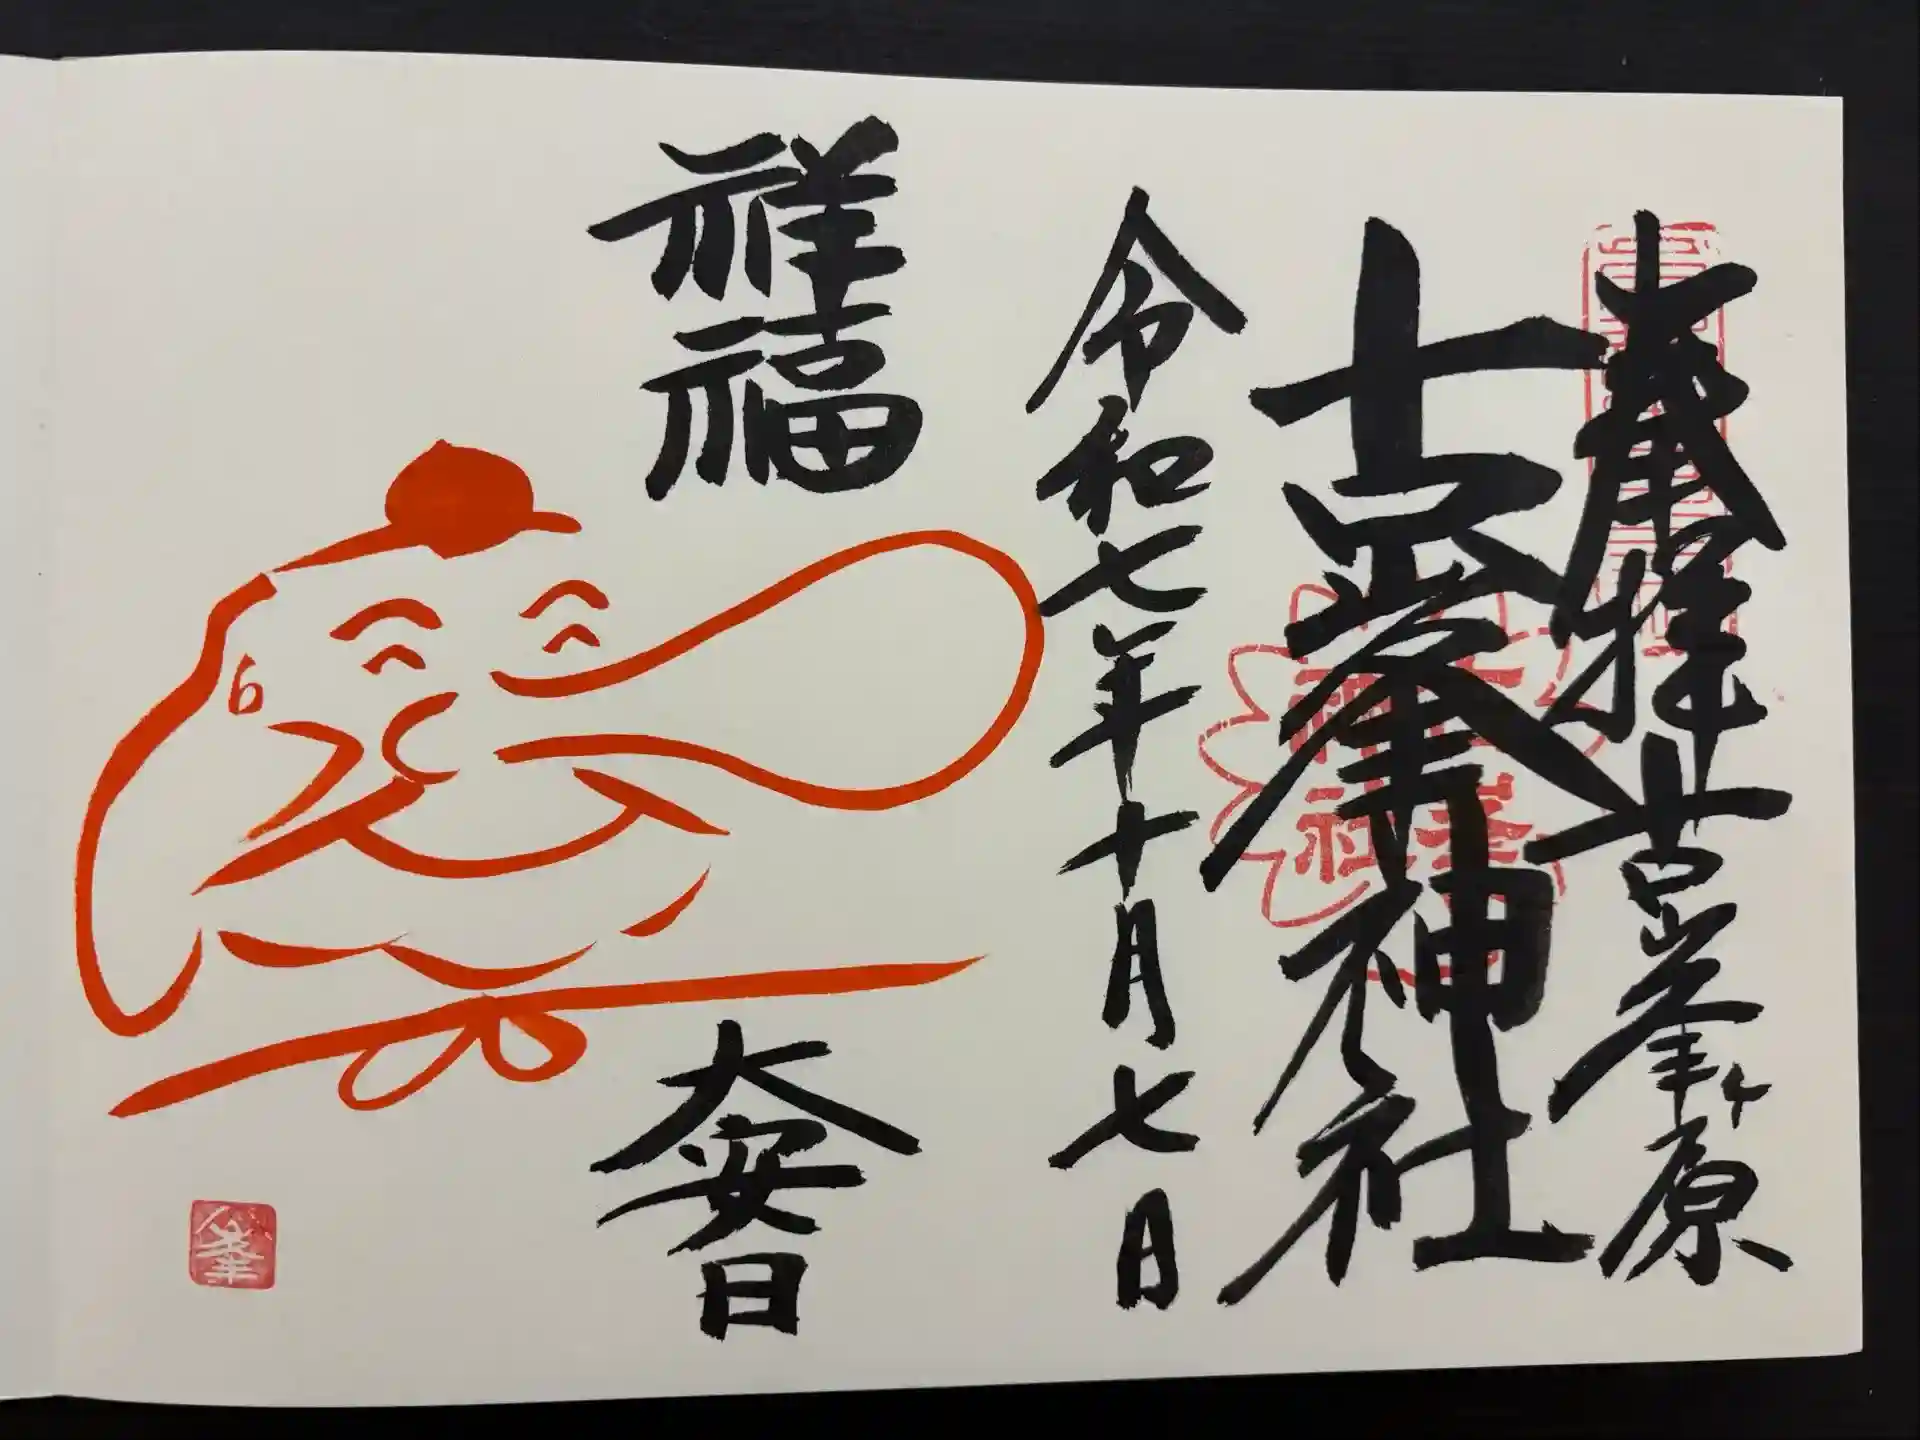 奉拝 古峯ヶ原
古峯神社
令和七年十月七日
祥福
大安日
神社
峯